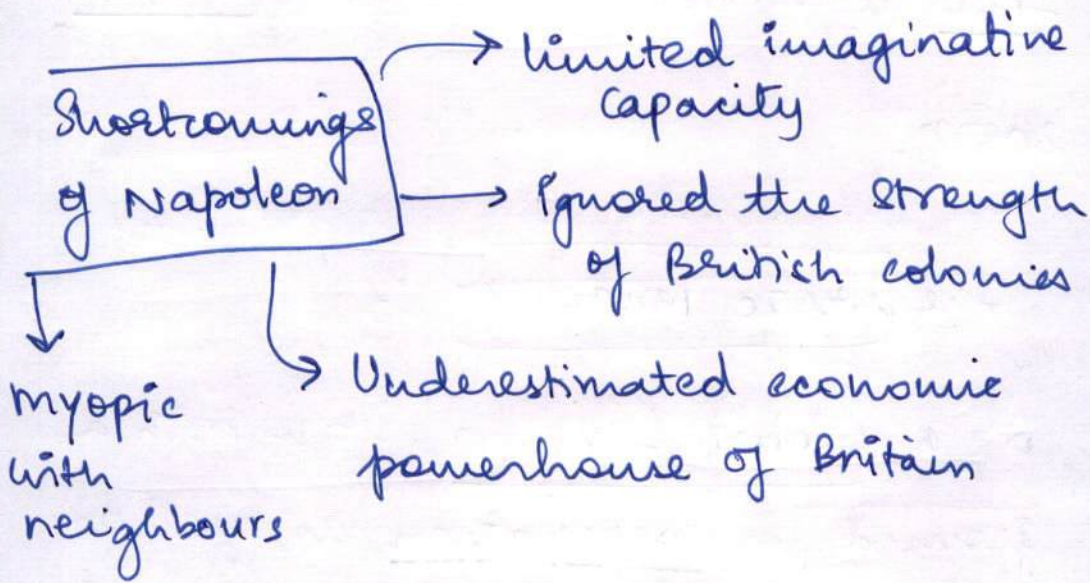 Shortcomings
of Napoleon
limited imaginative
capacity
Ignored the strength
of British colonies
Underestimated economic
powerhouse of Britain
myopic
with
neighbours